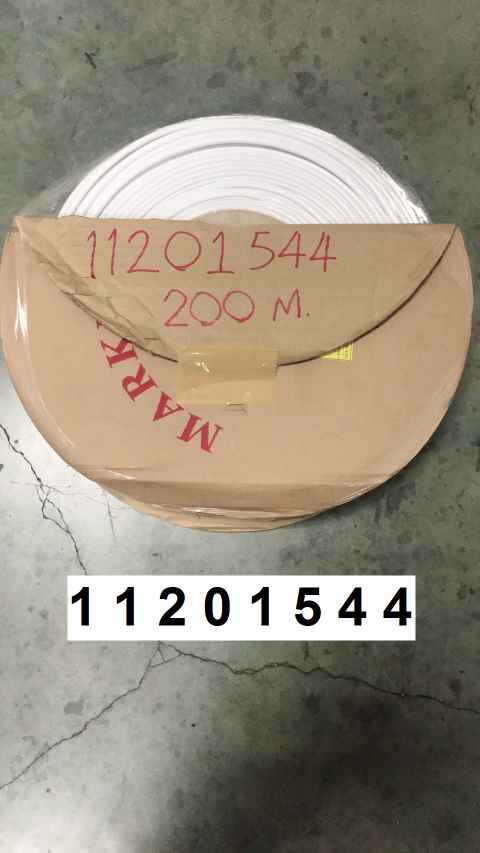 11201544
200 M.
MARK
11201544